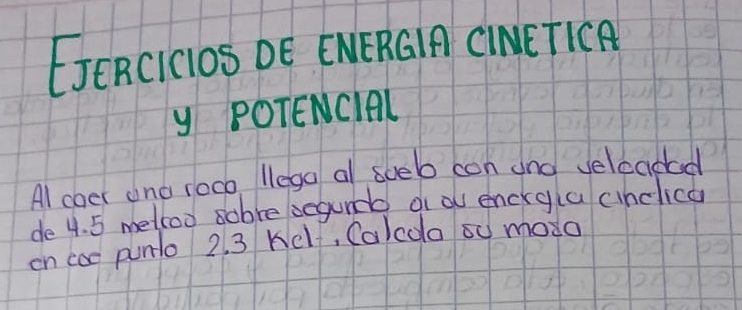 EJERCICIOS DE ENERGIA CINETICA
y POTENCIAL
Al caer una roca llega al suelo con una velocidad
de 4.5 metros sobre segundo si su energia cinetica
en ese punto 2.3 Kcl. Calcula su masa